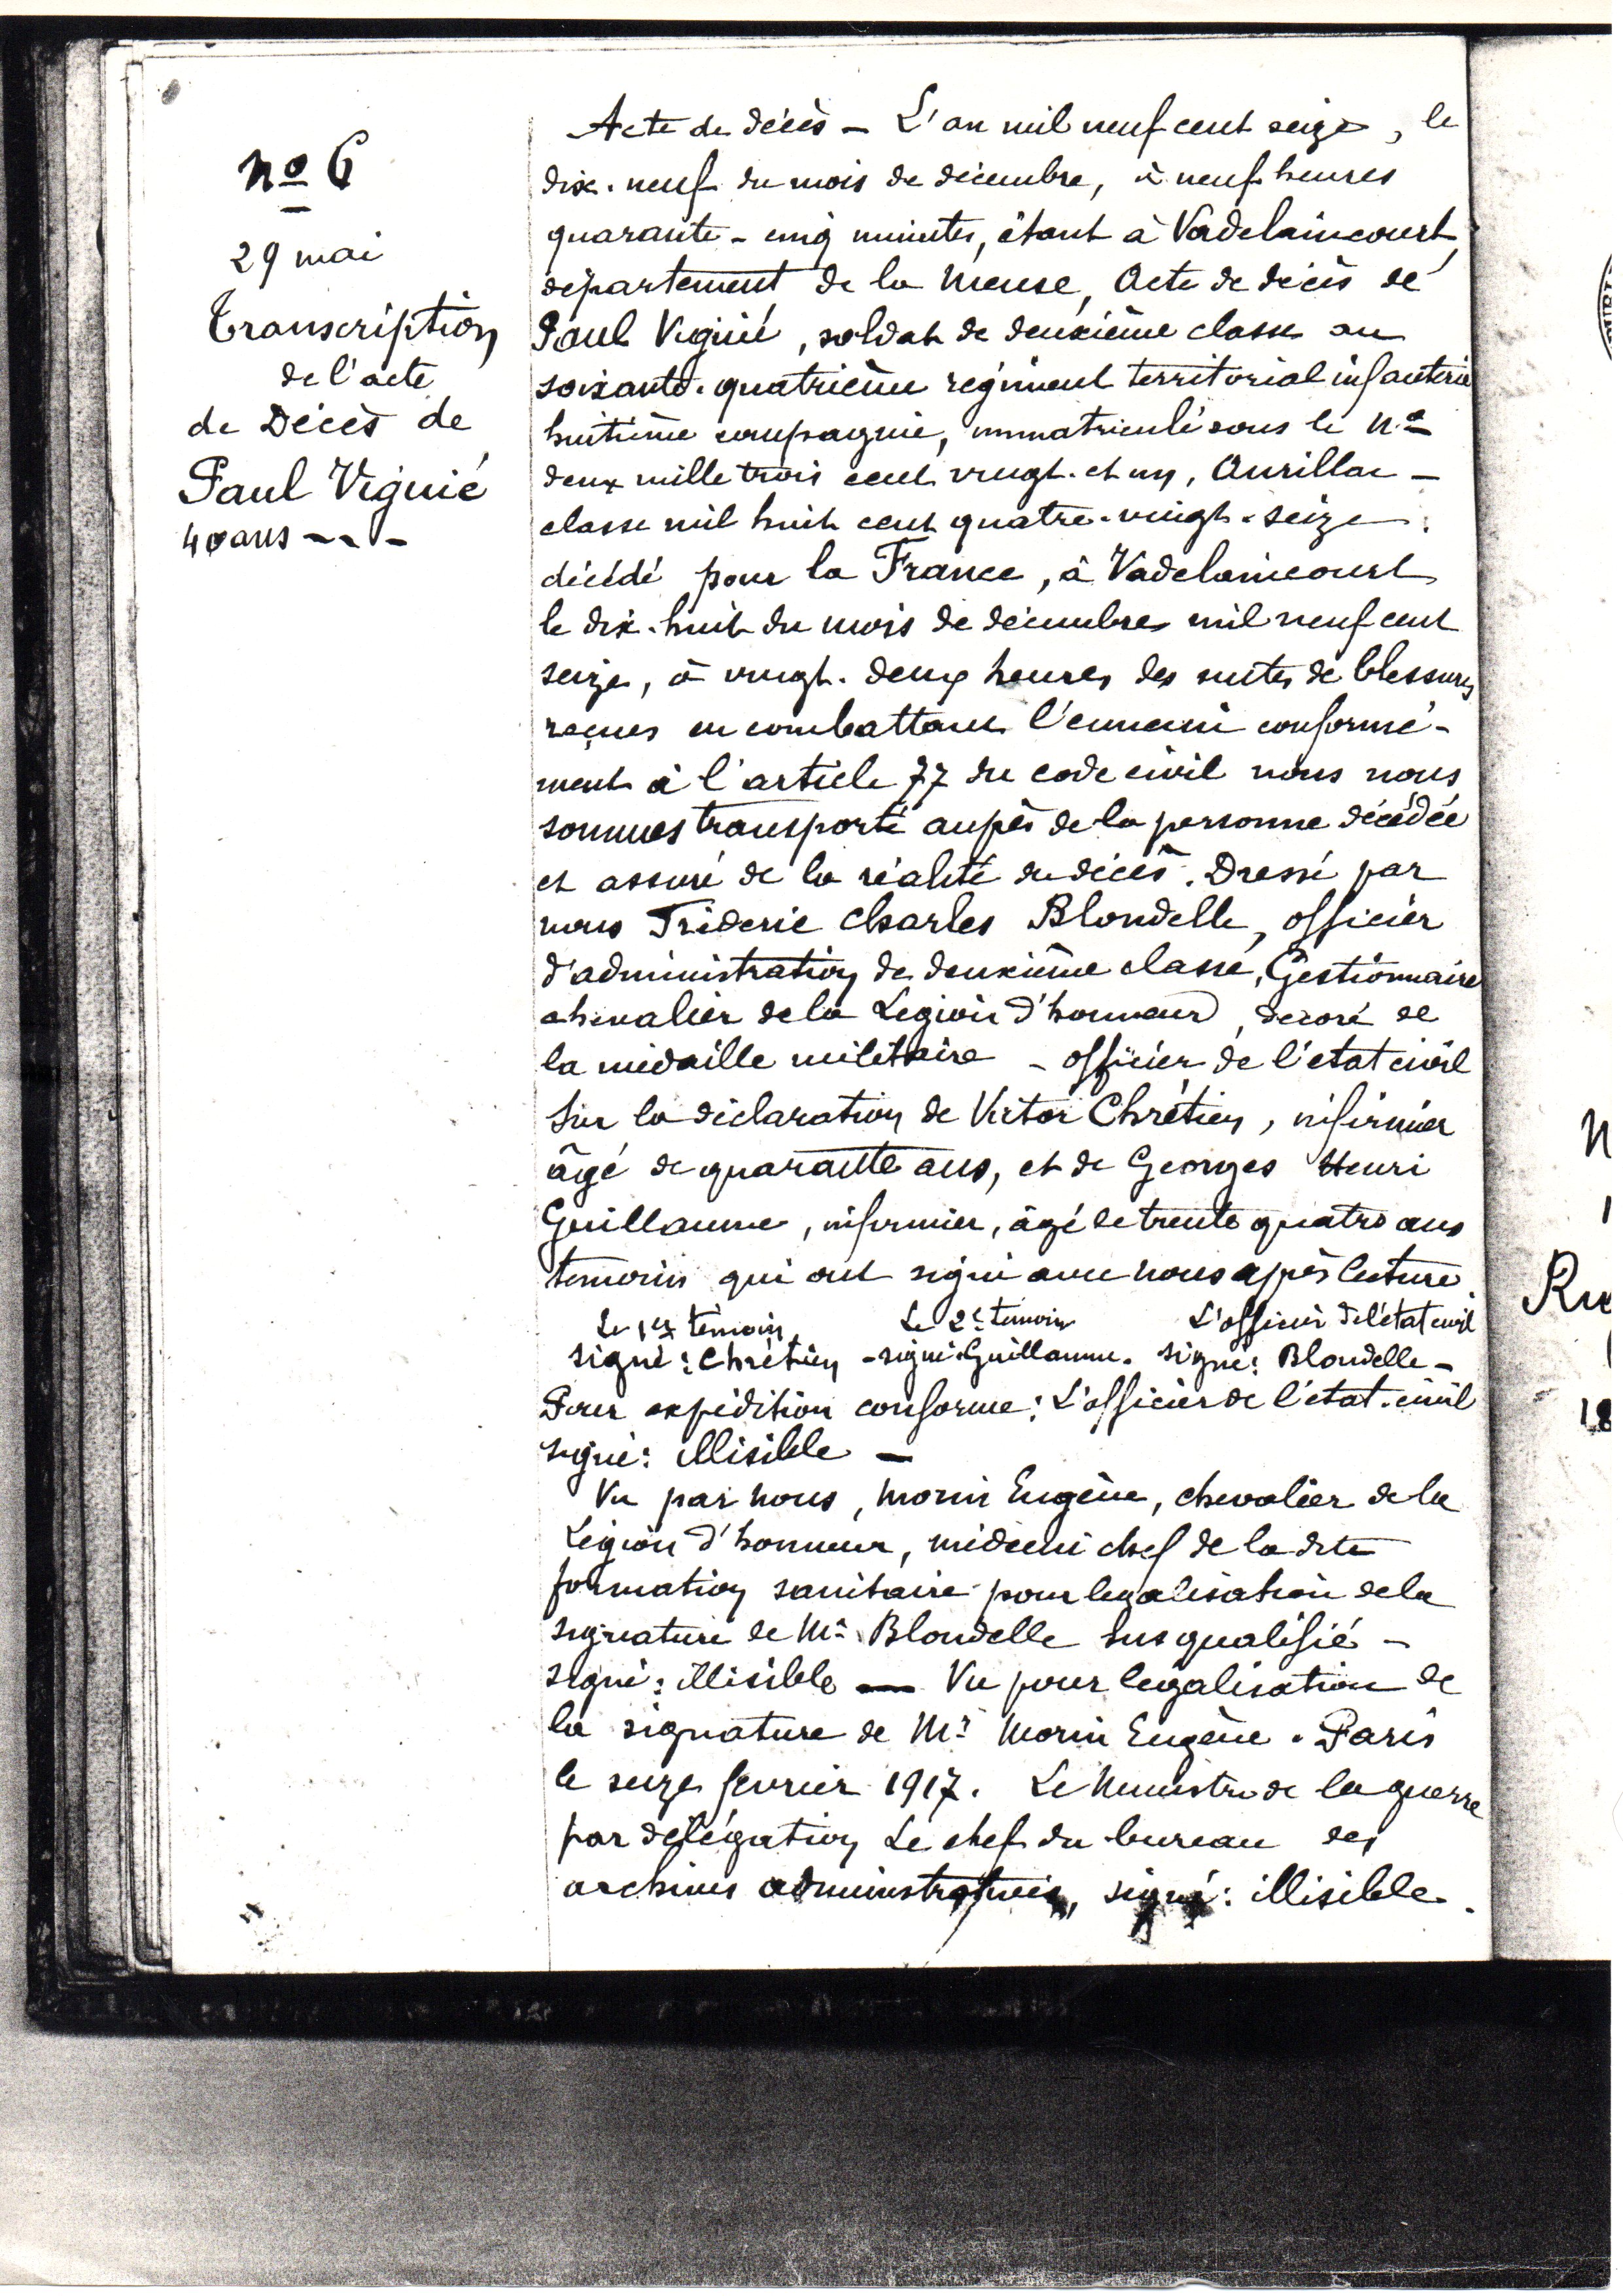 no 6
29 mai
Transcription
de l'acte
de Décès de
Paul Viguié
40 ans ---
Acte de décès - L'an mil neuf cent seize, le
dix-neuf du mois de décembre, à neuf heures
quarante-cinq minutes, étant à Vadelaincourt,
département de la Meuse, Acte de décès de
Paul Viguié, soldat de deuxième classe au
soixante-quatrième régiment territorial infanterie
huitième compagnie, immatriculé sous le No
deux mille trois cent vingt-et-un, Aurillac -
classe mil huit cent quatre-vingt-seize.
décédé pour la France, à Vadelaincourt
le dix-huit du mois de décembre mil neuf cent
seize, à vingt-deux heures des suites de blessures
reçues en combattant l'ennemi conformé-
ment à l'article 77 du code civil nous nous
sommes transporté aupès de la personne décédée
et assuré de la réalité du décès. Dressé par
nous Fréderic Charles Blondelle, officier
d'administration de deuxième classe, Gestionnaire
chevalier de la Legion d'honneur, décoré de
la médaille militaire - officier de l'état civil
sur la déclaration de Victor Chrétien, infirmier
âgé de quarante ans, et de Georges Henri
Guillaume, infirmier, âgé de trente quatre ans
temoins qui ont signé avec nous après lecture
Le 1er témoin, Le 2e témoin L'officier de l'état civil
signé : Chrétien - signé : Guillaume. signé : Blondelle -
Pour expédition conforme : L'officier de l'état-civil
signé : illisible -
Vu par nous, Morin Eugène, chevalier de la
Légion d'honneur, médecin chef de la dite
formation sanitaire pour legalisation de la
signature de Mr Blondelle susqualifié -
signé : illisible — Vu pour legalisation de
la signature de Mr Morin Eugène. Paris
le seize fevrier 1917. Le Ministre de la guerre
par délégation Le chef du bureau des
archives administratives, signé : illisible.
N
Ru
18